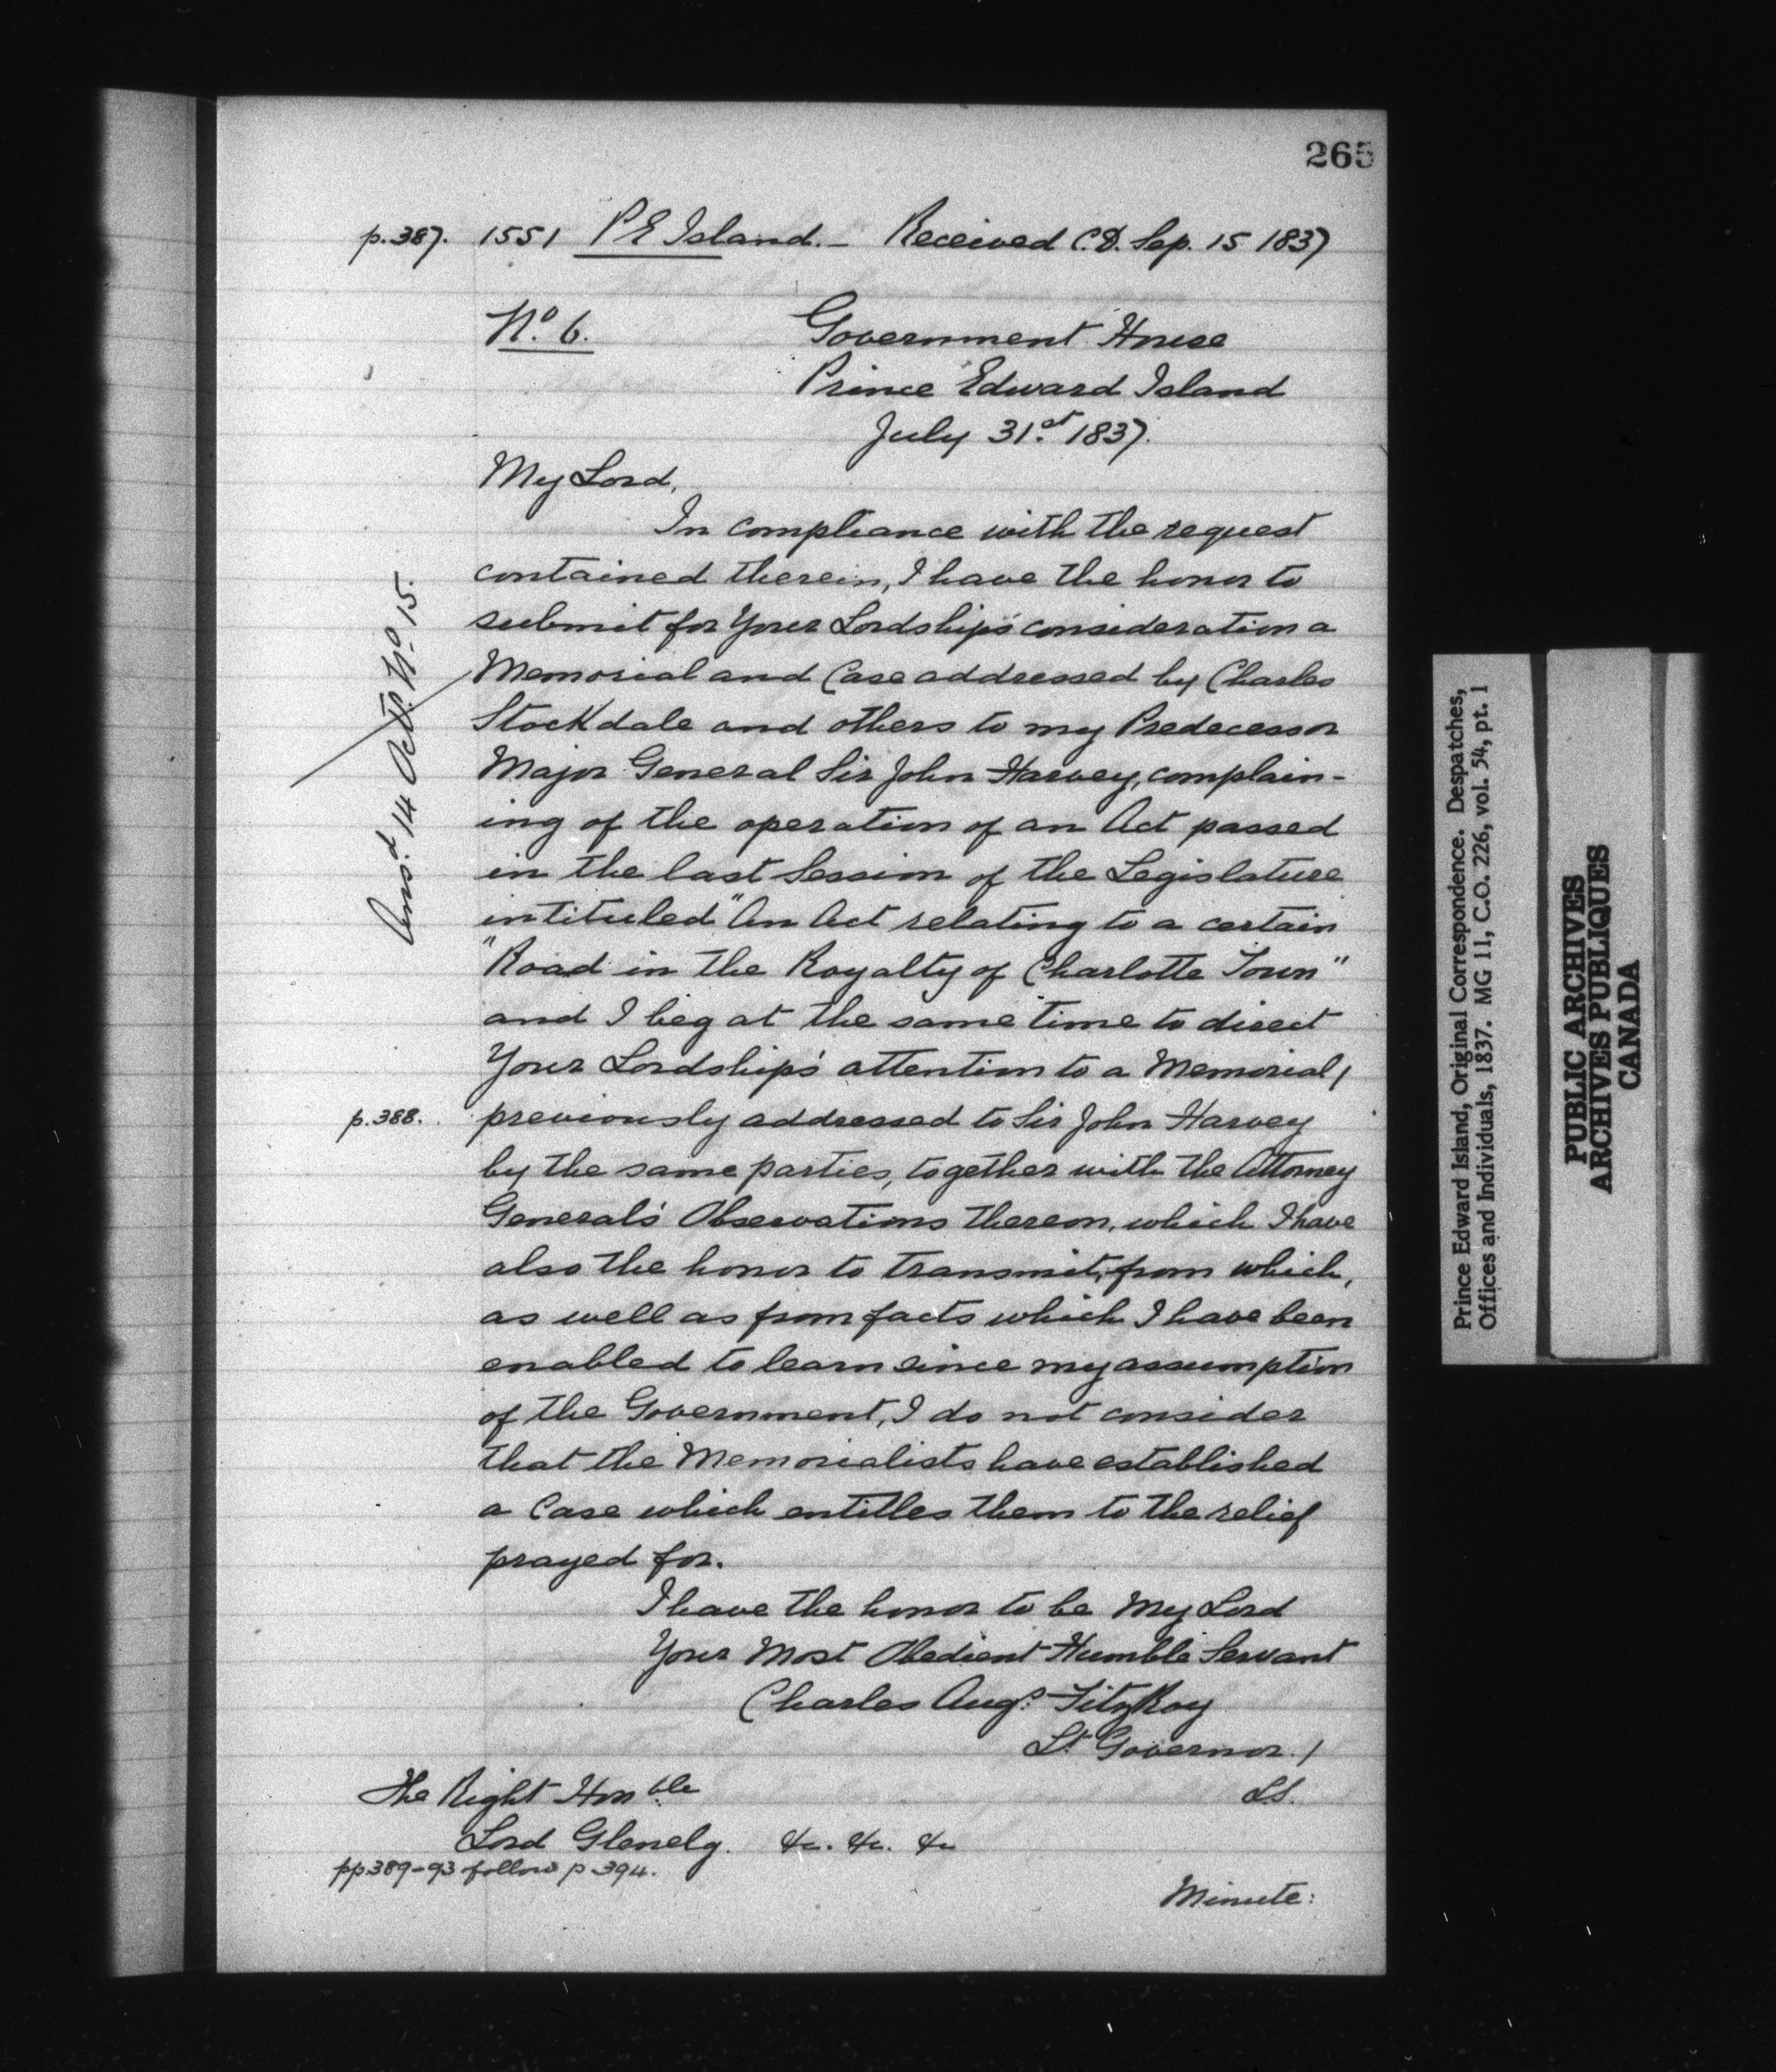 265
p.387. 1551 P E Island. — Received C.D. Sep. 15 1837
No. 6. Government House
Prince Edward Island
July 31.st 1837.
My Lord,
In compliance with the request
contained therein, I have the honor to
submit for Your Lordship's consideration a
Memorial and Case addressed by Charles
Stockdale and others to my Predecessor
Major General Sir John Harvey, complain-
ing of the operation of an Act passed
in the last Session of the Legislature
intituled "An Act relating to a certain
"Road in the Royalty of Charlotte Town"
and I beg at the same time to direct
Your Lordship's attention to a Memorial/
p.388. previously addressed to Sir John Harvey
by the same parties, together with the Attorney
General's Observations thereon, which I have
also the honor to transmit, from which,
as well as from facts which I have been
enabled to learn since my assumption
of the Government, I do not consider
that the Memorialists have established
a Case which entitles them to the relief
prayed for.
I have the honor to be My Lord
Your Most Obedient Humble Servant
Charles Augs. FitzRoy
Lt. Governor. /
LS.
The Right Honble
Lord Glenelg. &c. &c. &c
pp 389-93 follow p 394.
Minute:
Ansd. 14 Octr. No 15.
Prince Edward Island, Original Correspondence. Despatches,
Offices and Individuals, 1837. MG 11, C.O. 226, vol. 54, pt. 1
PUBLIC ARCHIVES
ARCHIVES PUBLIQUES
CANADA